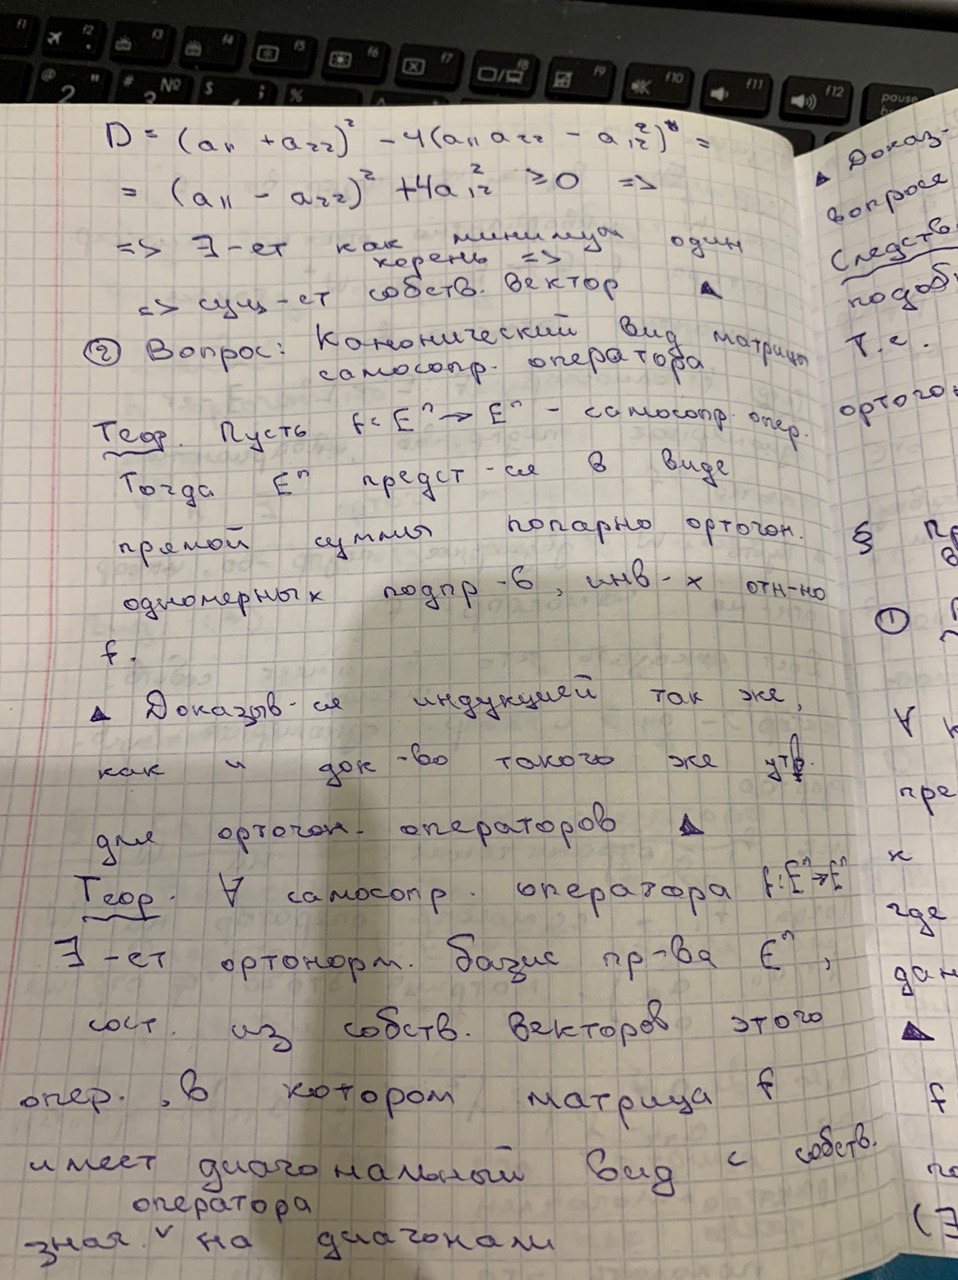 f1 f2 f3 f4 f5 f6 f7 f8 f9 f10 f11 f12 pause
@ 2 " # 3 № $ ; %
D = (a₁₁ + a₂₂)² - 4(a₁₁ a₂₂ - a₁₂²) =
= (a₁₁ - a₂₂)² + 4a₁₂² ≥ 0 =>
=> ∃-ет как минимум один
корень =>
=> сущ-ет собств. вектор ▲
② Вопрос: Канонический вид матрицы
самосопр. оператора
Теор. Пусть f: Eⁿ → Eⁿ - самосопр. опер.
Тогда Eⁿ предст-ся в виде
прямой суммы попарно ортогон.
одномерных подпр-в, инв-х отн-но
f.
▲ Доказыв-ся индукцией так же,
как и док-во такого же утв.
для ортогон. операторов ▲
Теор. ∀ самосопр. оператора f: Eⁿ→Eⁿ
∃-ет ортонорм. базис пр-ва Eⁿ,
сост. из собств. векторов этого
опер., в котором матрица f
имеет диагональный вид с собств.
оператора
знач. ˅ на диагонали
▲ Доказ-
вопросе
Следств
подоб
т.е.
ортогон
§ Пр
①
∀
пре
к
где
дан
▲
f